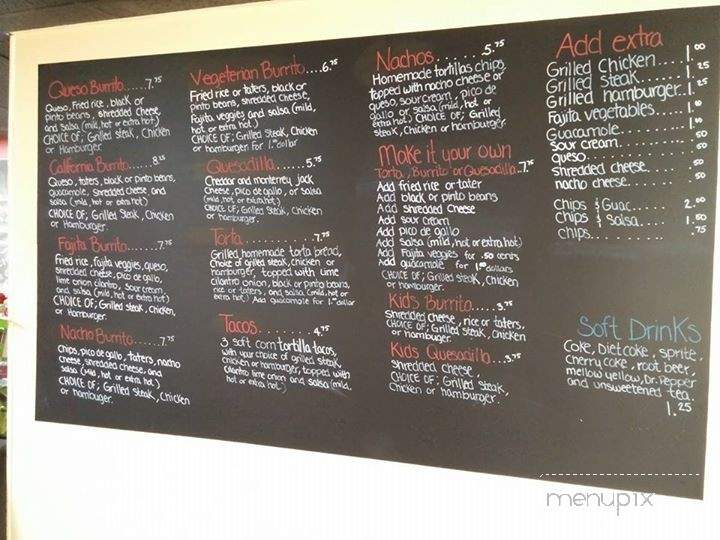 Queso Burrito......7.75
Queso, Fried rice, black or
pinto beans, shredded cheese,
and salsa (mild, hot or extra hot)
CHOICE OF; Grilled steak, Chicken
or Hamburger.
California Burrito.....8.25
Queso, taters, black or pinto beans,
guacamole, shredded cheese, and
salsa (mild, hot or extra hot)
CHOICE OF; Grilled Steak, Chicken
or Hamburger.
Fajita Burrito......7.75
Fried rice, fajita veggies, queso,
shredded cheese, pico de gallo,
lime onion cilantro, sour cream,
and salsa (mild, hot or extra hot)
CHOICE OF; Grilled steak, Chicken,
or Hamburger.
Nacho Burrito......7.75
Chips, pico de gallo, taters, nacho
cheese, shredded cheese, and
salsa (mild, hot or extra hot)
CHOICE OF; Grilled Steak, Chicken
or hamburger.
Vegeterian Burrito....6.75
Fried rice or taters, black or
pinto beans, shredded cheese,
Fajita veggies and salsa (mild,
hot or extra hot)
CHOICE OF; Grilled steak, Chicken
or hamburger for 1.00 dollar
Quesadilla......5.75
Cheddar and monterrey jack
Cheese, pico de gallo, or salsa
(mild, hot or extra hot)
CHOICE OF; Grilled Steak, Chicken
or hamburger.
Torta..........7.75
Grilled homemade torta bread,
Choice of grilled steak, chicken or
hamburger, topped with lime
cilantro onion, black or pinto beans,
rice or taters, and salsa (mild, hot or
extra hot) Add guacamole for 1.00 dollar
Tacos........4.75
3 soft corn tortilla tacos,
with your choice of grilled steak,
Chicken or hamburger, topped with
cilantro lime onion and salsa (mild,
hot or extra hot)
Nachos......5.75
Homemade tortillas chips,
topped with nacho cheese or
queso, sour cream, pico de
gallo or salsa (mild, hot or
extra hot) CHOICE OF; Grilled
steak, Chicken or hamburger.
Make it your own
Torta, Burrito or Quesadilla..7.75
Add fried rice or tater
Add black or pinto beans
Add Shredded Cheese
Add sour cream
Add pico de gallo
Add Salsa (mild, hot or extra hot)
Add Fajita veggies for .50 cents
Add guacamole for 1.00 dollars
CHOICE OF; Grilled steak, Chicken
or hamburger.
Kids Burrito.....3.75
Shredded cheese, rice or taters,
CHOICE OF; Grilled Steak, Chicken
or hamburger.
Kids Quesadilla....3.75
Shredded cheese,
CHOICE OF; Grilled Steak,
Chicken or hamburger.
Add extra
Grilled Chicken....1.00
Grilled steak....1.25
Grilled hamburger..1.25
Fajita vegetables....
Guacamole.......1.00
Sour cream......50
queso..........50
shredded cheese.....50
nacho cheese.....50
Chips & Guac....2.00
Chips & Salsa....1.50
chips..........75
Soft Drinks
Coke, Diet coke, sprite,
Cherry coke, root beer,
mellow yellow, Dr. Pepper
and unsweetened tea.
1.25
menupix